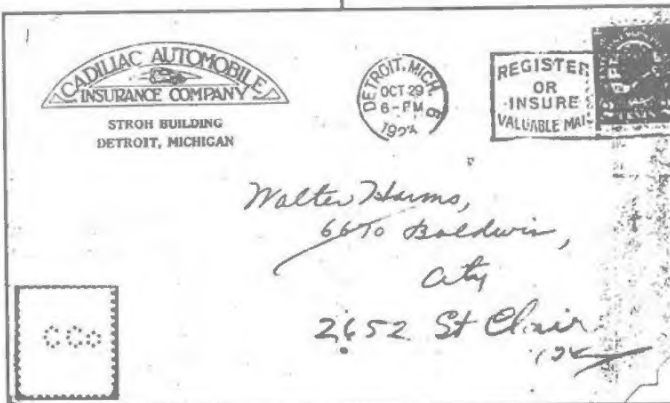 CADILLAC AUTOMOBILE
INSURANCE COMPANY
STROH BUILDING
DETROIT, MICHIGAN
DETROIT, MICH. 6
OCT 29
6-PM
REGISTER
OR
INSURE
VALUABLE MAIL
Walter Harms,
Baldwin,
City
2652 St Clair
CCo